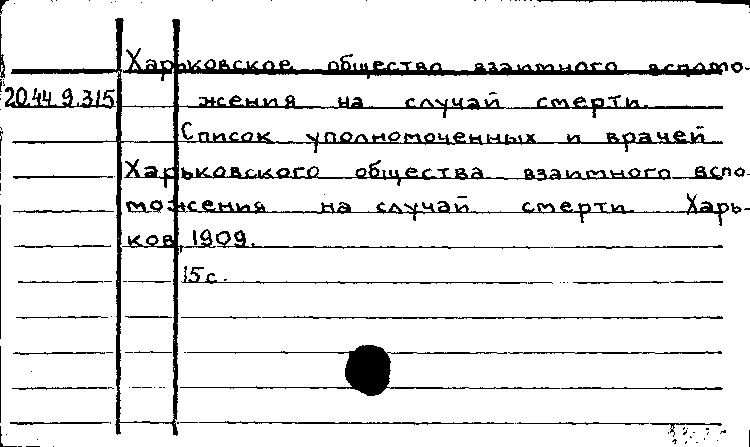 Харьковское общество взаимного вспомо-
20.44.9.315 жения на случай смерти.
Список уполномоченных и врачей
Харьковского общества взаимного вспо-
можения на случай смерти. Харь-
ков, 1909.
15 с.